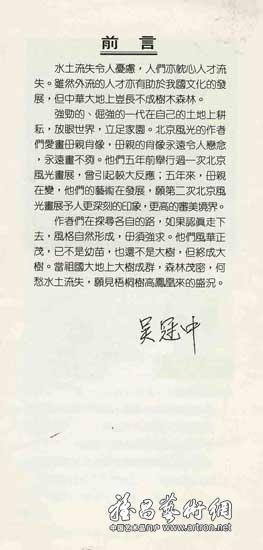 前言
水土流失令人憂慮，人們亦眈心人才流
失。雖然外流的人才亦有助於我國文化的發
展，但中華大地上豈長不成樹木森林。
強勁的、倔強的一代在自己的土地上耕
耘，放眼世界，立足家園。北京風光的作者
們愛畫母親肖像，母親的肖像永遠令人戀念
，永遠畫不夠。他們五年前舉行過一次北京風
光畫展，曾引起較大反應；五年來，母親
在變，他們的藝術在發展，願第二次北京風
光畫展予人更深刻的印象，更高的審美境界。
作者們在探尋各自的路，如果認真走下
去，風格自然形成，毋須強求。他們風華正
茂，已不是幼苗，也還不是大樹，但終成大
樹。當祖國大地上大樹成群，森林茂密，何
愁水土流失，願見梧桐樹高鳳凰來的盛況。
吳冠中
雅昌藝術網
中国艺术品门户 www.artron.net